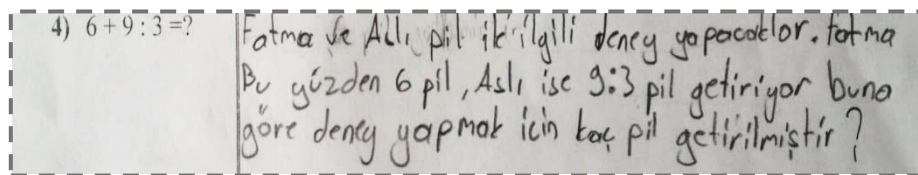 4) 6 + 9 : 3 =?
Fatma ve Aslı, pil ile ilgili deney yapacaklar. Fatma
Bu yüzden 6 pil, Aslı ise 9:3 pil getiriyor buna
göre deney yapmak için kaç pil getirilmiştir?